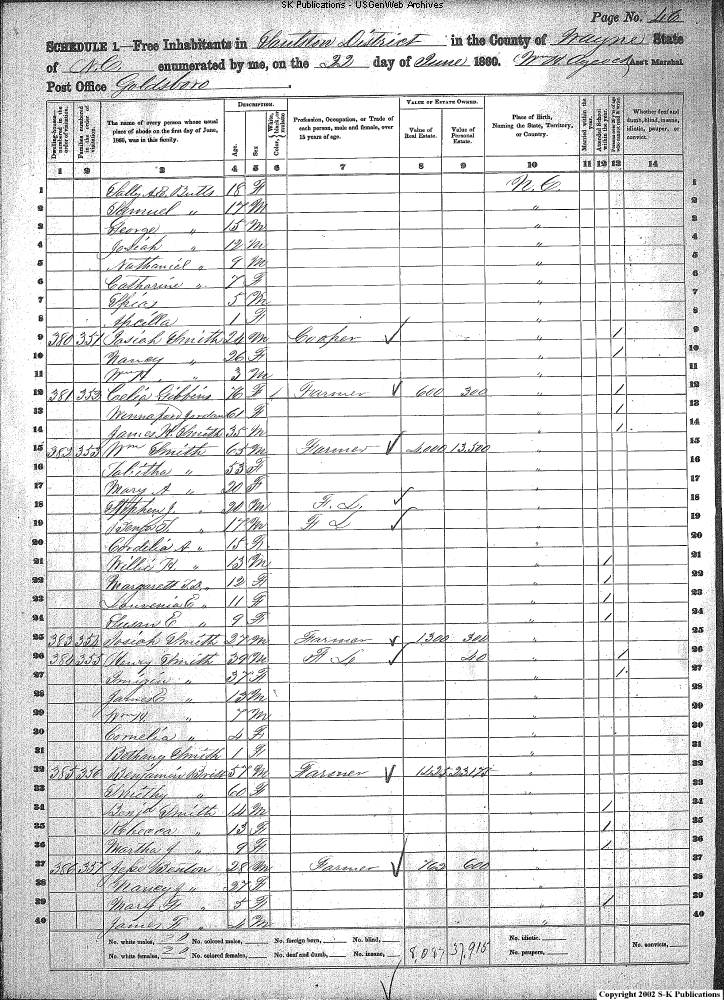 SK Publications - USGenWeb Archives
Page No. 46
SCHEDULE 1.—Free Inhabitants in Saulston District in the County of Wayne State
of N.C. enumerated by me, on the 22 day of June 1860. Ass't Marshal
Post Office Goldsboro
Dwelling-houses—numbered in the order of visitation.
Families numbered in the order of visitation.
The name of every person whose usual place of abode on the first day of June, 1860, was in this family.
DESCRIPTION.
Age.
Sex
Color, White, black, or mulatto
Profession, Occupation, or Trade of each person, male and female, over 15 years of age.
VALUE OF ESTATE OWNED.
Value of Real Estate.
Value of Personal Estate.
Place of Birth, Naming the State, Territory, or Country.
Married within the year.
Attended School within the year.
Whether deaf and dumb, blind, insane, idiotic, pauper, or convict.
1 2 3 4 5 6 7 8 9 10 11 12 13 14
1 Sally A.E. Butts 18 F N.C. 1
2 Samuel " 17 M " 2
3 George " 15 M " 3
4 Josiah " 12 M " 4
5 Nathaniel " 9 M " 5
6 Catharine " 7 F " 6
7 5 M " 7
8 1 F " 8
9 380 351 Josiah Smith 24 M Cooper " / 9
10 Nancy " 26 F " / 10
11 Wm H. " 3 M " 11
12 381 352 Celia Gibbins 76 F Farmer 600 300 " / 12
13 Jordan 61 F " / 13
14 James H. Smith 35 M " / 14
15 382 353 Wm Smith 65 M Farmer 4,000 13,500 " 15
16 Tabitha " 53 F " 16
17 Mary A " 20 F " 17
18 Stephen J. " 20 M F. L. " 18
19 " 17 M F L " 19
20 Cordelia A " 15 F " 20
21 Willie H " 13 M " / 21
22 Margarett " 12 F " / 22
23 Louvenia E " 11 F " / 23
24 Susan E " 9 F " / 24
25 383 354 Josiah Smith 27 M Farmer 1300 300 " 25
26 384 355 Henry Smith 39 M F L 40 " / 26
27 " 37 F " / 27
28 James E " 13 M " 28
29 Wm H. " 7 M " 29
30 Cornelia " 4 F " 30
31 Bethany Smith 1 F " 31
32 385 356 Benjamin 57 M Farmer 1425 23175 " 32
33 " 60 F " 33
34 Benj Smith 14 M " / 34
35 Rebecca " 13 F " / 35
36 Martha J " 9 F " / 36
37 386 357 Jesse Benton 28 M Farmer 762 600 " 37
38 Nancy J " 27 F " 38
39 Mary F " 5 F " / 39
40 James F " 4 M " 40
No. white males, 20 No. colored males, No. foreign born, No. blind, No. idiotic, No. convicts,
No. white females, 20 No. colored females, No. deaf and dumb, No. insane, 8,087 37,915 No. paupers,
Copyright 2002 S-K Publications